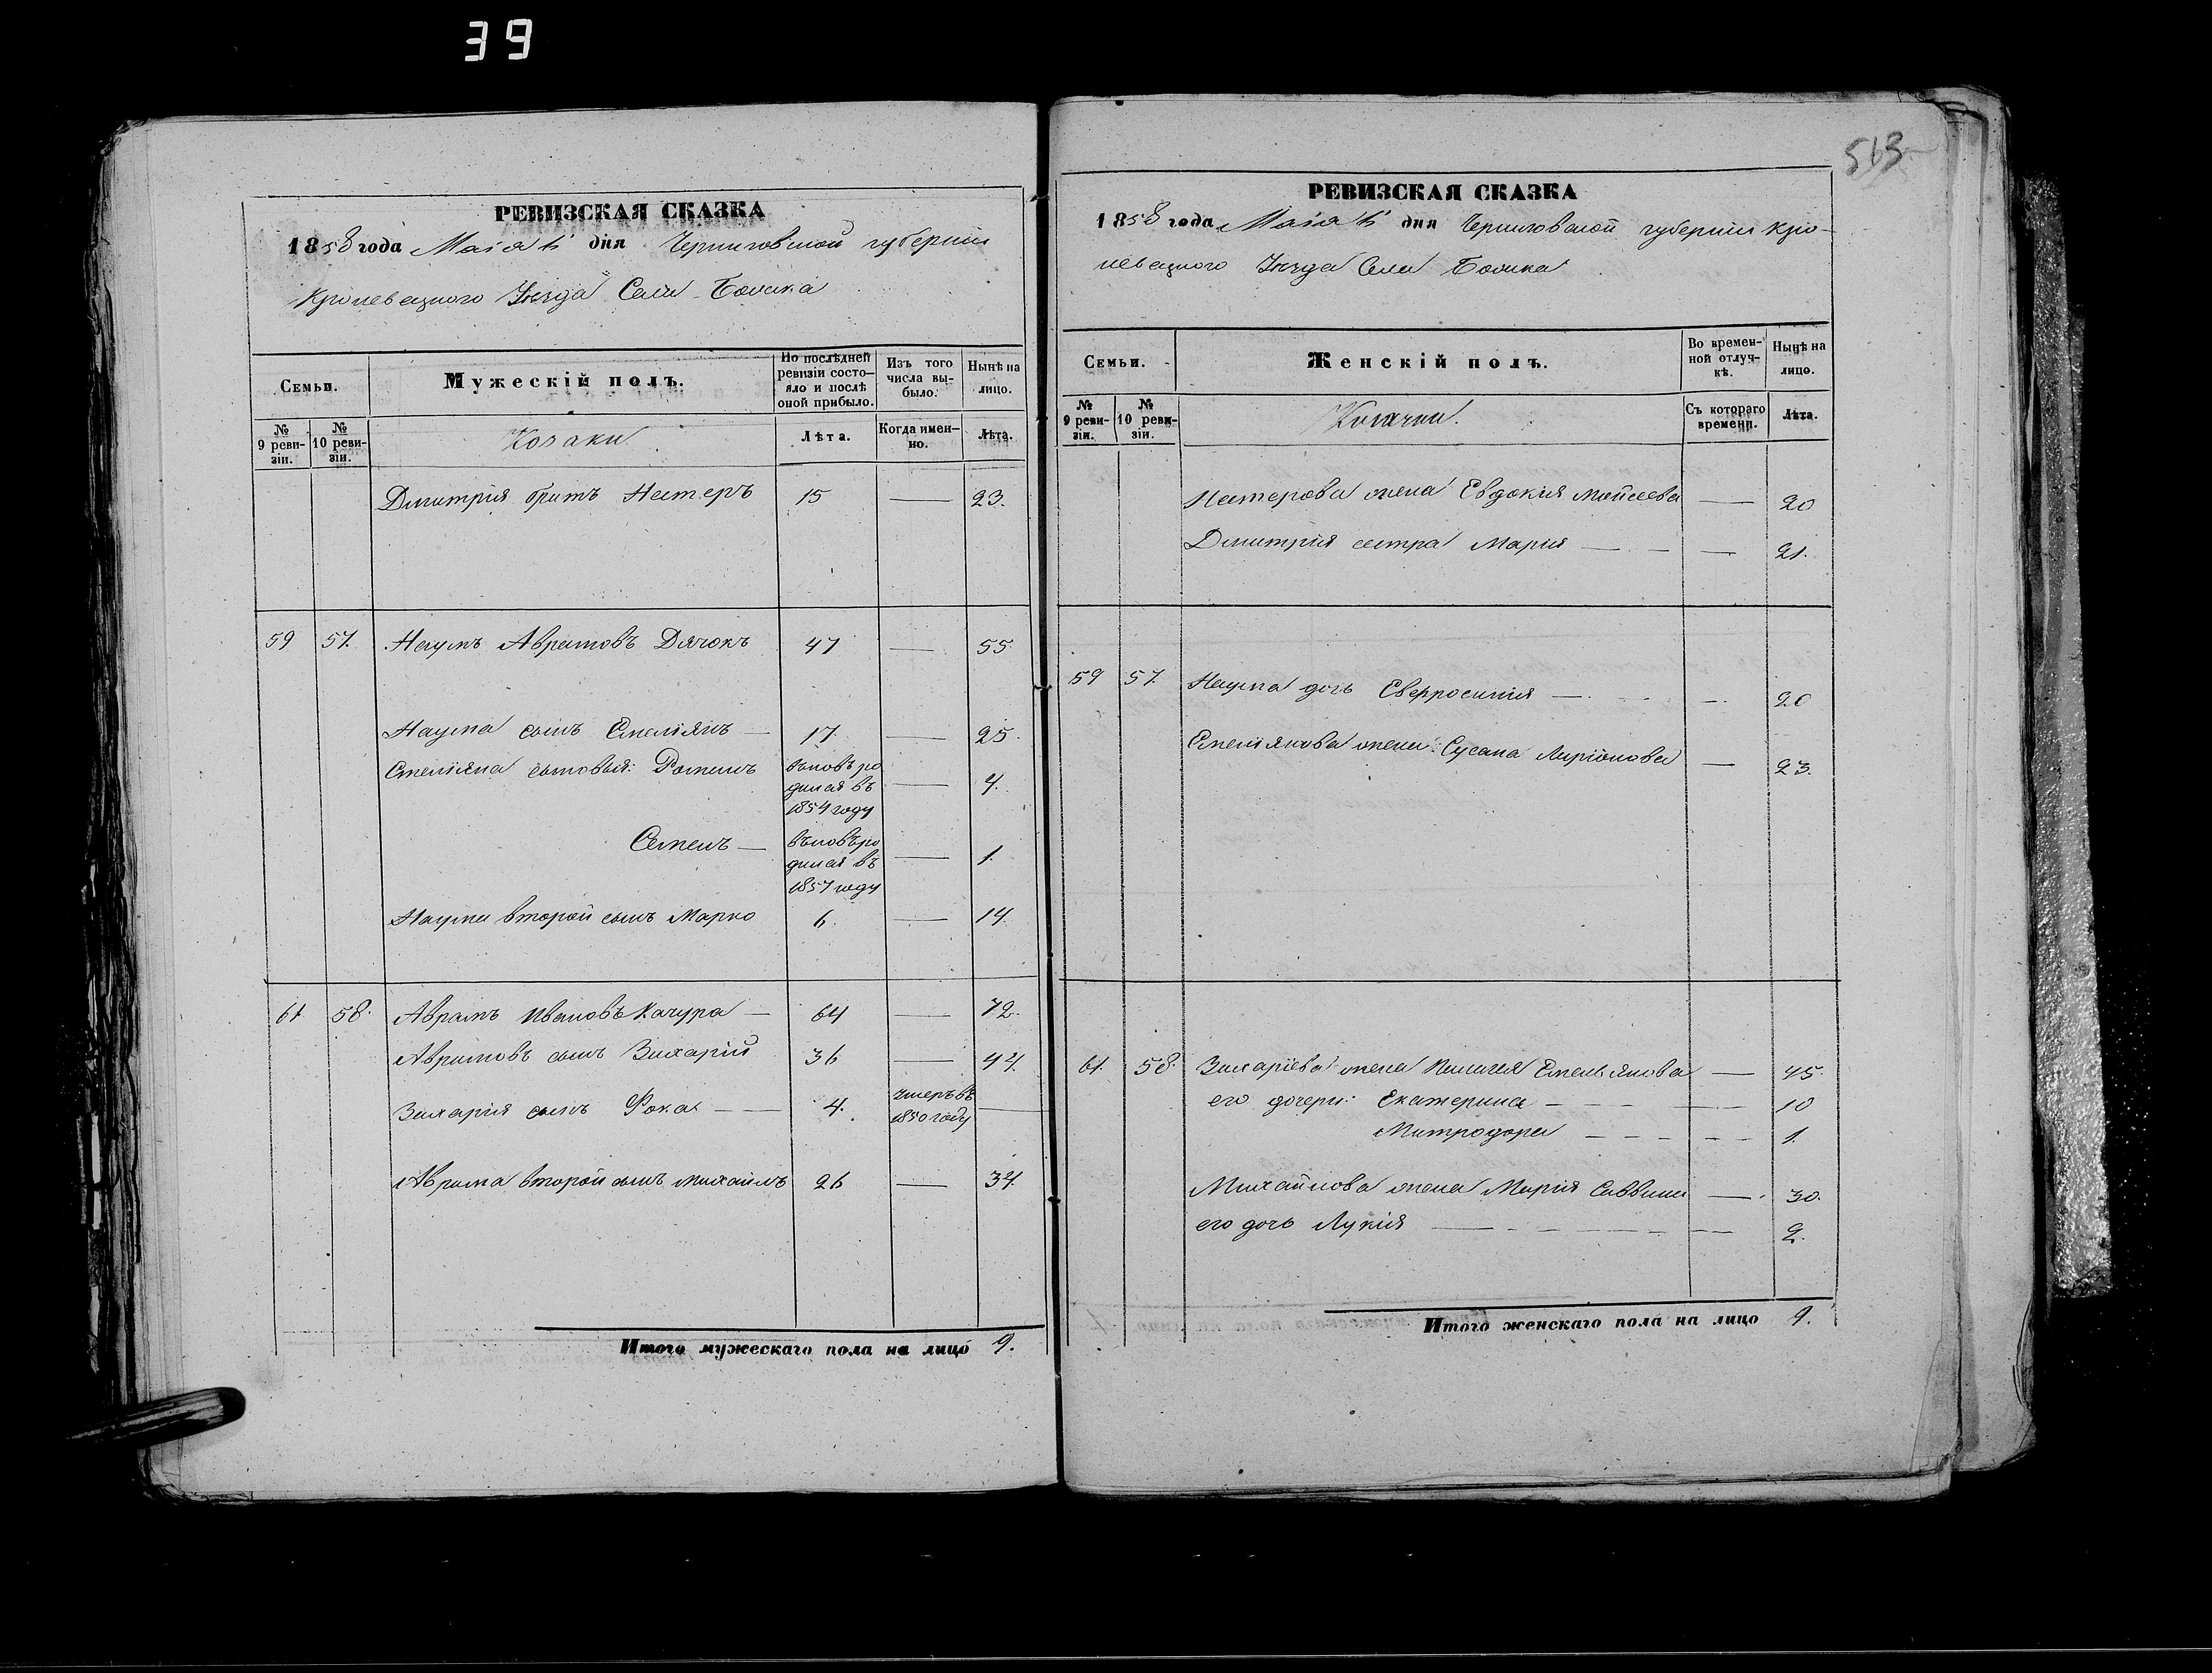 39
513
РЕВИЗСКАЯ СКАЗКА
1858 года Маія 6 дня Черниговской губерніи
Кролевецкого Уѣзда Села
Семьи.
Мужескій полъ.
По послѣдней ревизіи состояло и послѣ оной прибыло.
Изъ того числа выбыло.
Нынѣ на лицо.
№ 9 ревизіи.
№ 10 ревизіи.
Козаки.
Лѣта.
Когда именно.
Лѣта.
Дмитрія братъ Нестеръ 15 — 23.
59 57. Наумъ Аврамовъ Дячокъ 47 — 55.
Наума сынъ Емеліянъ — 17 — 25.
Емеліяна сыновья: Романъ вновь ро
дился въ — 4.
1854 году
Семенъ — вновь ро
дился въ — 1.
1857 году
Наума второй сынъ Марко 6. — 14.
61 58. Аврамъ Ивановъ Качура — 64 — 72.
Аврамовъ сынъ Захарій 36 — 44.
Захарія сынъ Фока — 4. умеръ въ
1850 году —
Аврама второй сынъ Михаилъ 26 — 34.
Итого мужескаго пола на лицо 9.
РЕВИЗСКАЯ СКАЗКА
1858 года Маія 6 дня Черниговской губерніи Кро-
левецкого Уѣзда Села
Семьи.
Женскій полъ.
Во временной отлучкѣ.
Нынѣ на лицо.
№ 9 ревизіи.
№ 10 ревизіи.
Козачки.
Съ котораго времени.
Лѣта.
Нестерова жена Евдокія Мойсеева — 20
Дмитрія сестра Марія — — — 21.
59 57. Наума дочь Евфросинія — — 20
Емеліянова жена: Сусана Ларіонова — 23.
61. 58. Захаріева жена Емельянова — 45.
его дочери: Екатерина — — 10
Митродора — — 1.
Михайлова жена Марія Саввина — 30.
его дочь Лукія — — 2.
Итого женскаго пола на лицо 9.